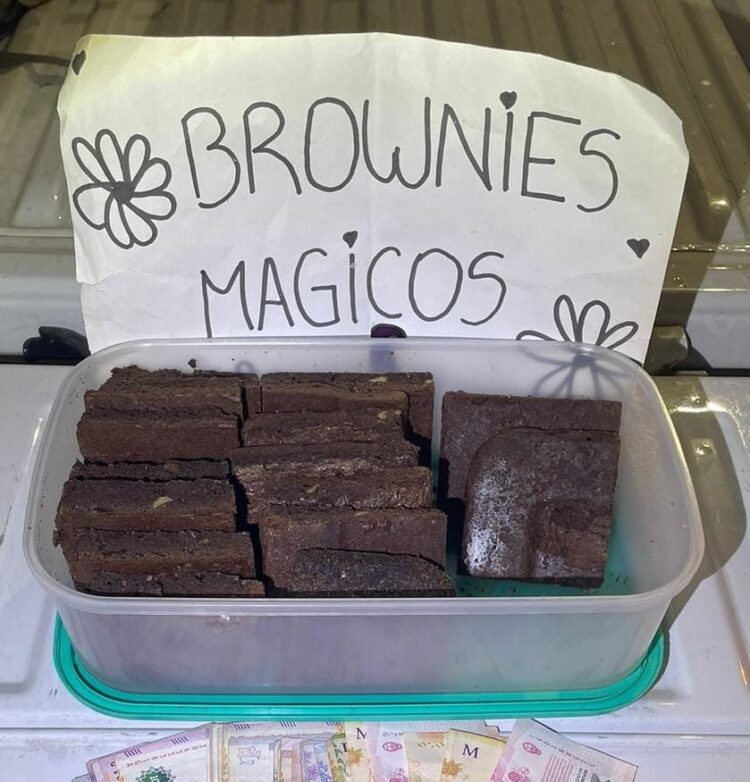 BROWNiES
MAGiCOS
M
M